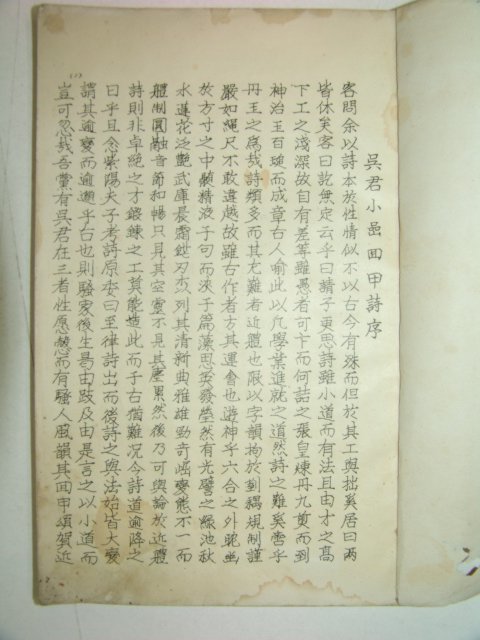 吳君小邑回甲詩序
客問余以詩本於性情似不以古今有殊而但於其工與拙奚居曰兩
皆休矣客曰訖無定云乎曰請子更思詩雖小道而有法且由才之高
下工之淺深故自有差等雖愚者可卞而何詰之張皇煉丹九煎而到
神治玉百琢而成章古人喻此以凡學業進就之道然詩之難奚啻乎
丹玉之爲哉詩類多而其尤難者近體也限以字韻拘於對耦規制謹
嚴如繩尺不敢違越故雖古作者方其運會也遊神乎六合之外
於方寸之中 精液于句而浹于篇藻思英發瑩然有光譬之綠池秋
水蓮花泛艶武庫晨霜 刃 列其清新典雅雄勁奇崛變態不一而
體制圓融音節和暢只見其空靈不見其塵累然後乃可與論於近體
詩則非卓絶之才鍛鍊之工莫能造此而于古猶難况今詩道逾降之
曰乎且念紫陽夫子考詩原本曰至律詩出而後詩之與法始皆大變
謂其逾變而逾遜乎古也則騷家後生曷由跂及由是言之以小道而
豈可忽哉吾黨有吳君在三者性愿慤而有騷人風韻其回甲頌賀近